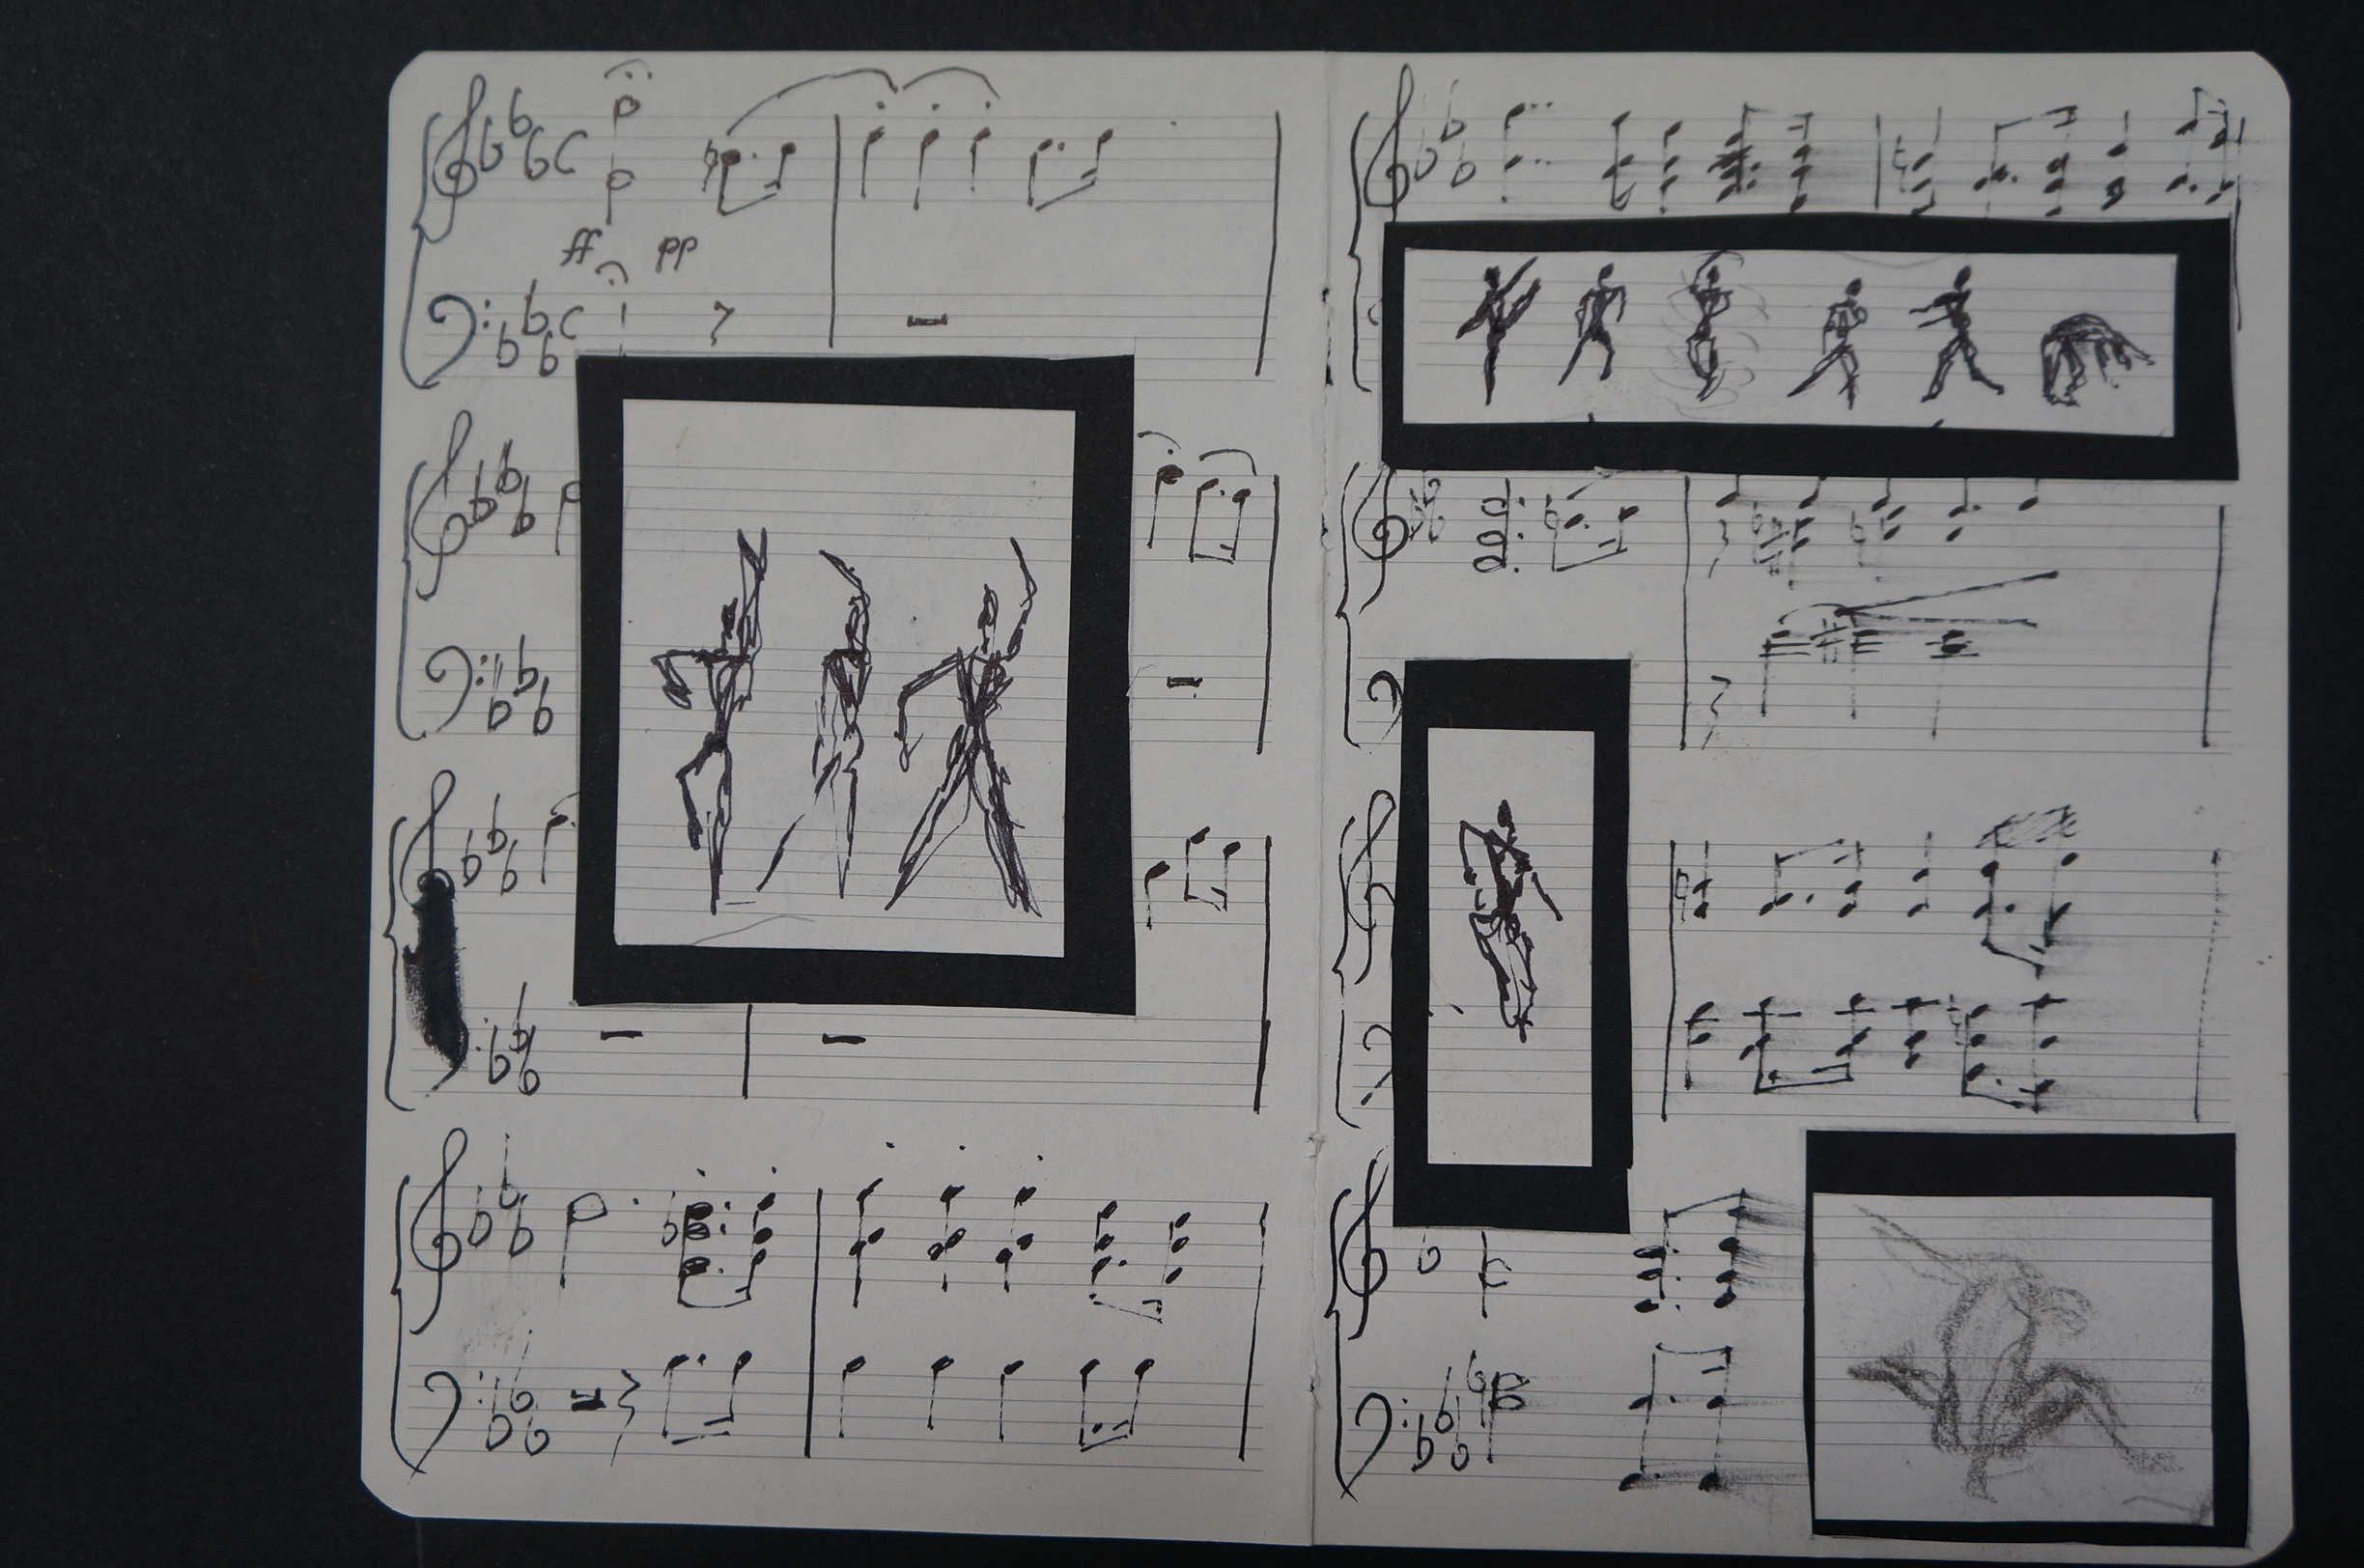 ff pp